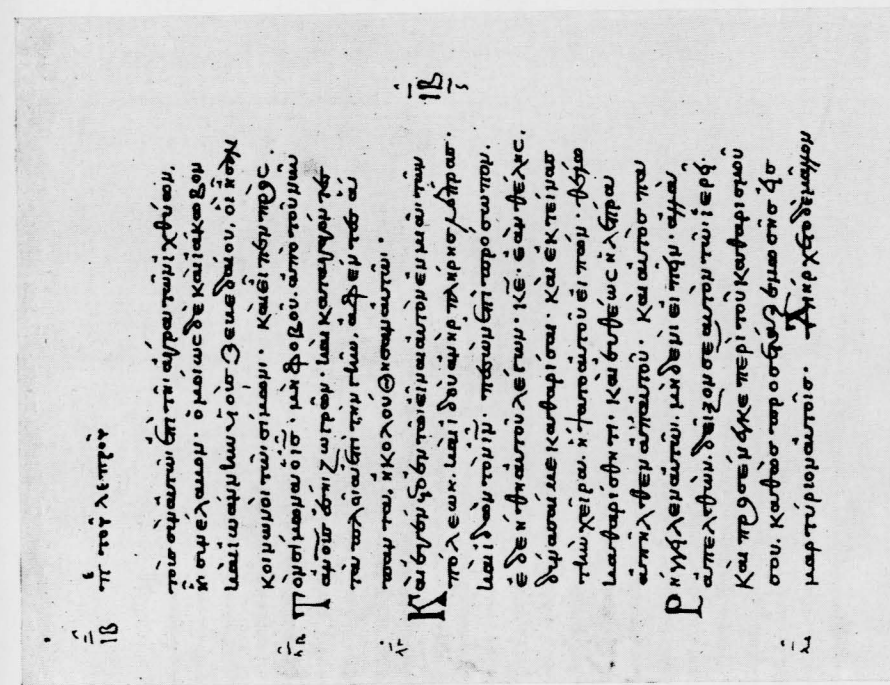 ΙΒ π τοῦ λεπροῦ
τοῖς σὺν αὐτῶι ἐπὶ τῆι ἄγραι τῶν ἰχθύων.
ἧι συνέλαβον. ὁμοίως δὲ καὶ ἰάκωβον
καὶ ἰωάννην υἱοὺς Ζεβεδαίου, οἳ ἦσαν
κοινωνοὶ τῶι σίμωνι. καὶ εἶπεν πρὸς
τὸν σίμωνα ὁ ις. μὴ φοβοῦ. ἀπὸ τοῦ νῦν
ἀνους ἔσηι ζωγρῶν. καὶ καταγαγόντες
τὰ πλοῖα ἐπὶ τὴν γῆν. ἀφέντες ἅ
παντα, ἠκολούθησαν αὐτῶι.
ΙΒ
Καὶ ἐγένετο ἐν τῶι εἶναι αὐτὸν ἐν μιᾶι τῶν
πόλεων. καὶ ἰδοὺ ἀνὴρ πλήρης λέπρας.
καὶ ἰδὼν τὸν ιν. πεσὼν ἐπὶ πρόσωπον.
ἐδεήθη αὐτοῦ λέγων. κε. ἐὰν θέλης.
δύνασαί με καθαρίσαι. καὶ ἐκτείνας
τὴν χεῖρα. ἥψατο αὐτοῦ εἰπών. θέλω
καθαρίσθητι. καὶ εὐθέως ἡ λέπρα
ἀπῆλθεν ἀπ' αὐτοῦ. καὶ αὐτὸς πα
Ρήγγειλεν αὐτῶι. μηδενὶ εἰπεῖν. ἀλλὰ
ἀπελθὼν. δεῖξον σεαυτὸν τῶι ἱερεῖ.
Καὶ προσένεγκε περὶ τοῦ καθαρισμοῦ
σου. καθὼς προσέταξε μωσῆς εἰς
μαρτύριον αὐτοῖς. Διήρχετο δὲ μᾶλλον